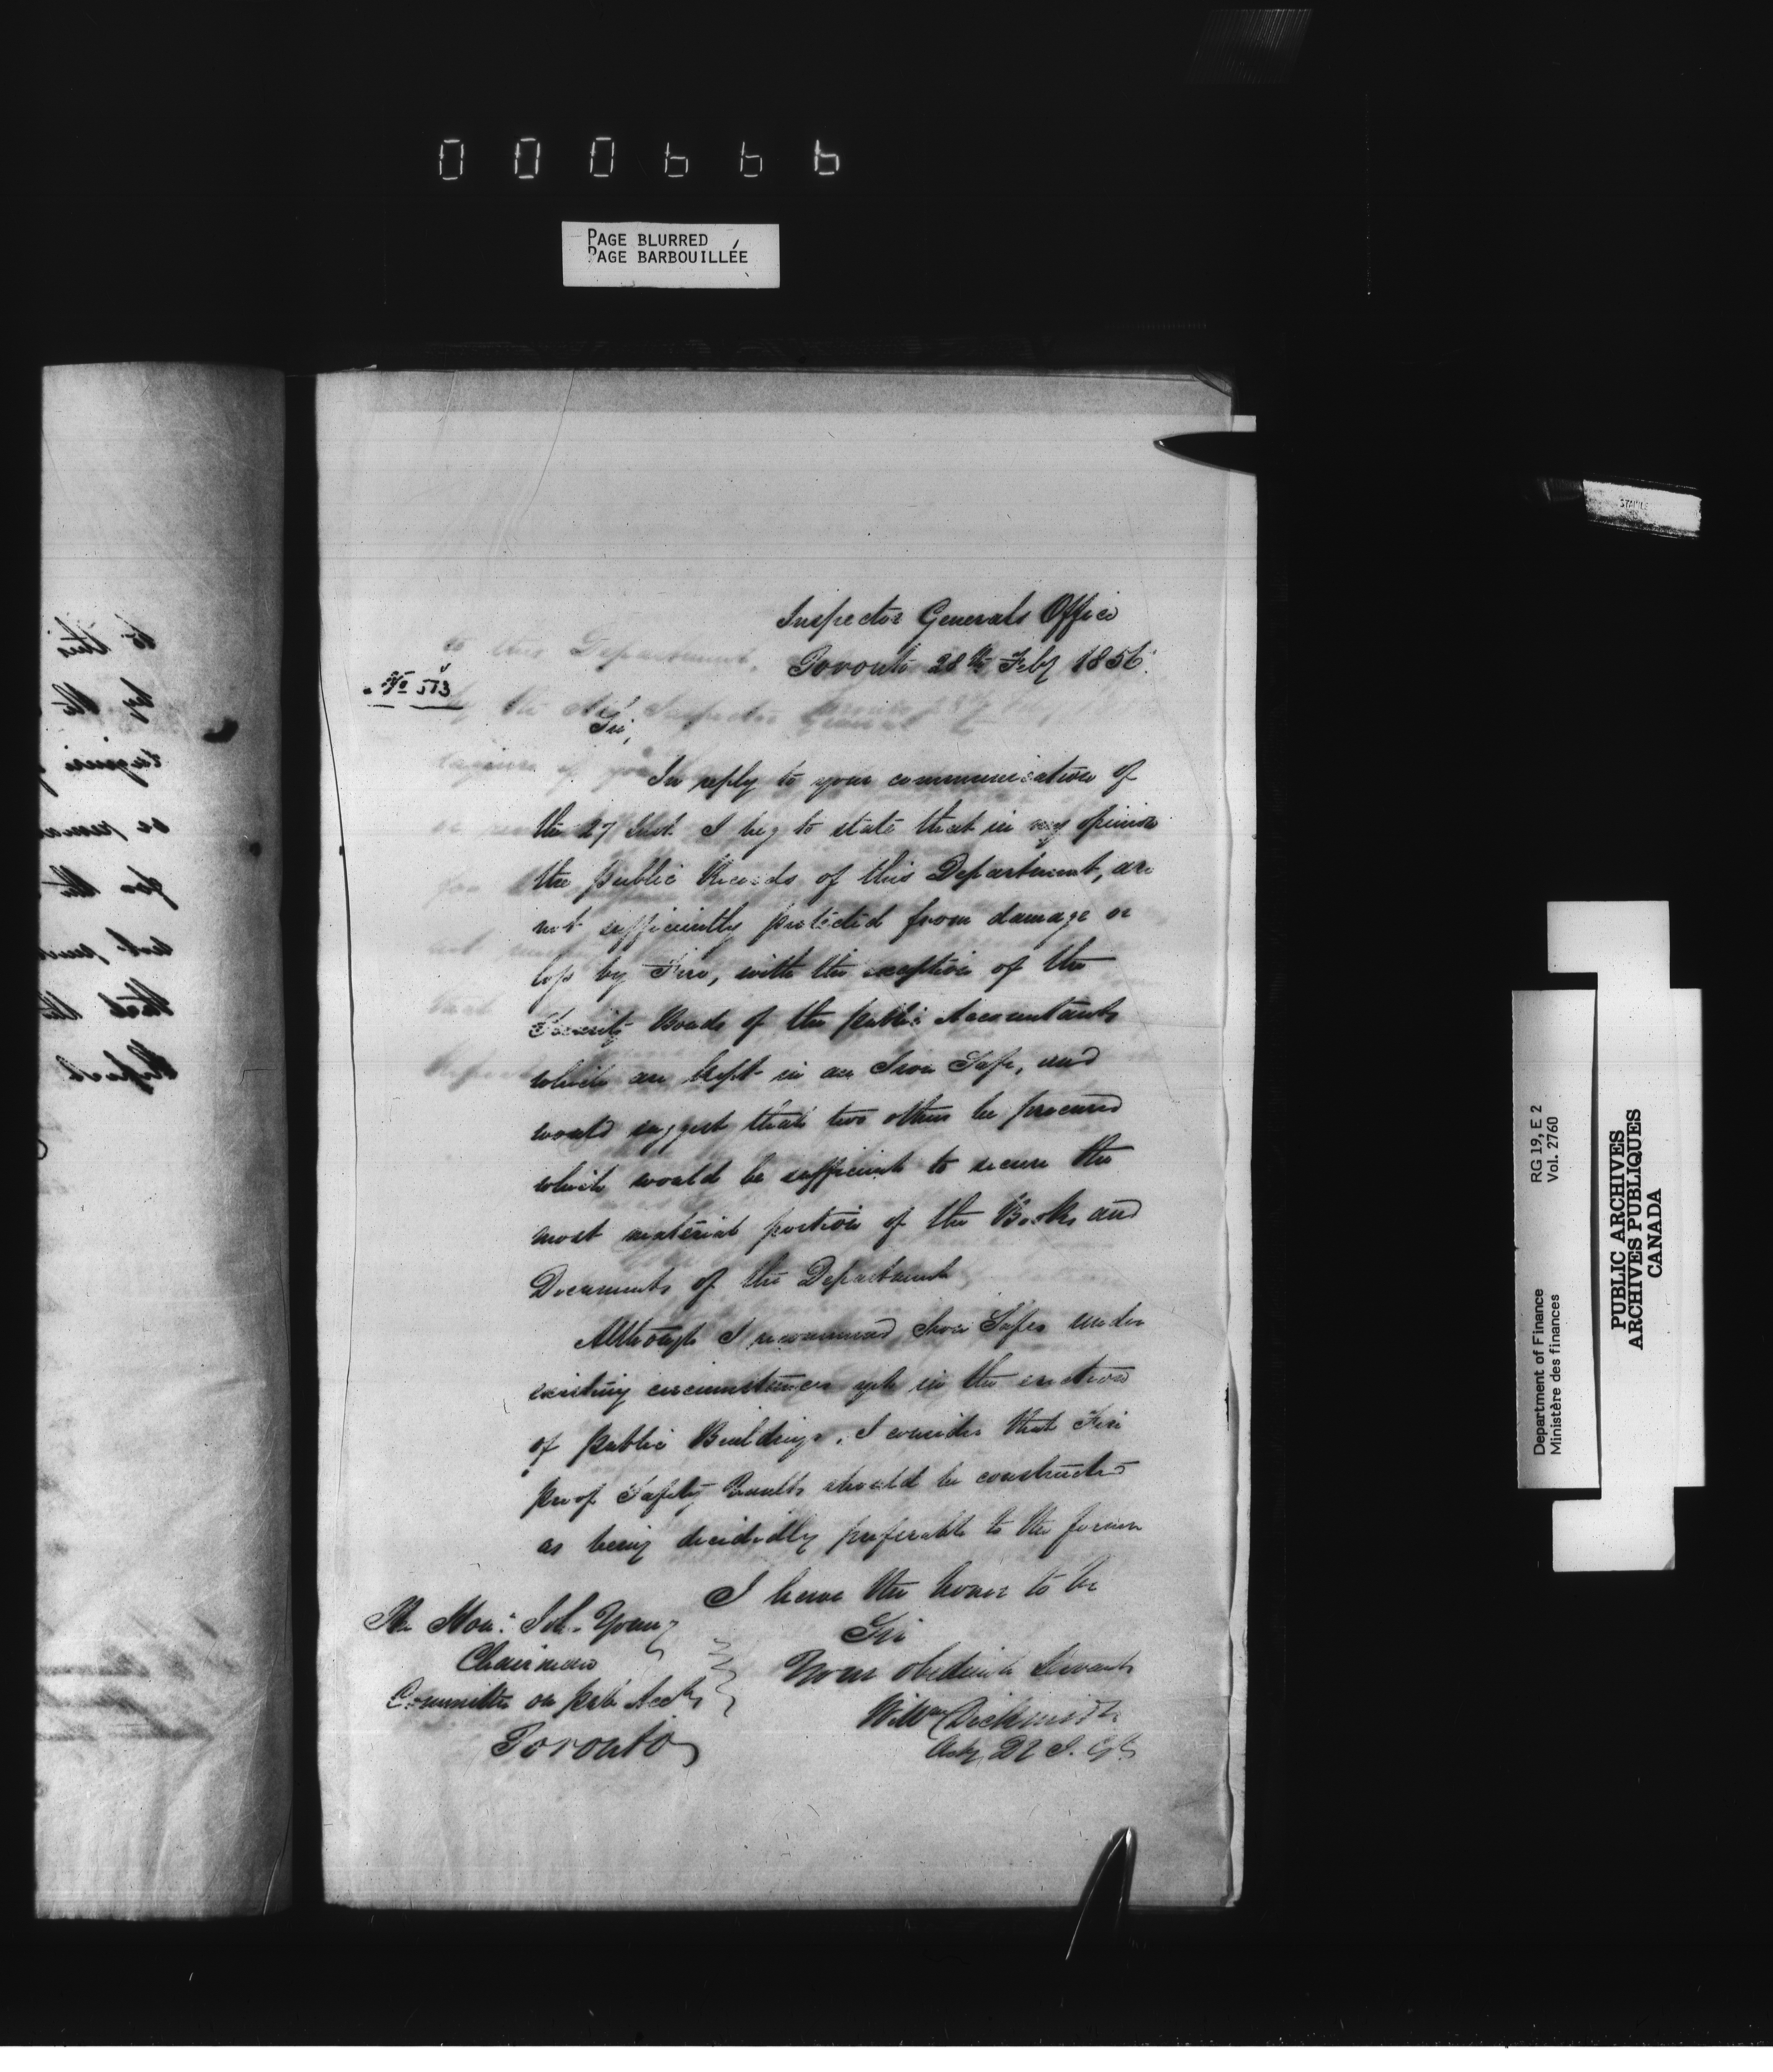 000666
PAGE BLURRED
PAGE BARBOUILLÉE
Inspector Generals Office
Toronto 28th Feby 1856.
No 513
Sir,
In reply to your communication of
the 27 Inst. I beg to state that in my opinion
the public Records of this Department, are
not sufficiently protected from damage or
loss by Fire, with the exception of the
Security Bonds of the public Accountants
which are kept in an Iron Safe, and
would suggest that two others be procured
which would be sufficient to secure the
most material portion of the Books and
Documents of the Department
Although I recommend Iron Safes under
existing circumstances yet in the erection
of public Buildings, I consider that Fire
proof Safety Vaults should be constructed
as being decidedly preferable to the former
I have the honor to be
Sir
Your obedient Servant
Willm Dickinson
Actg D I. Gl
The Hon: Joh. Young
Chairman
Committee on pub Accts
Toronto
to this
by the
for the
that the
Department of Finance RG 19, E 2
Ministère des finances Vol. 2760
PUBLIC ARCHIVES
ARCHIVES PUBLIQUES
CANADA